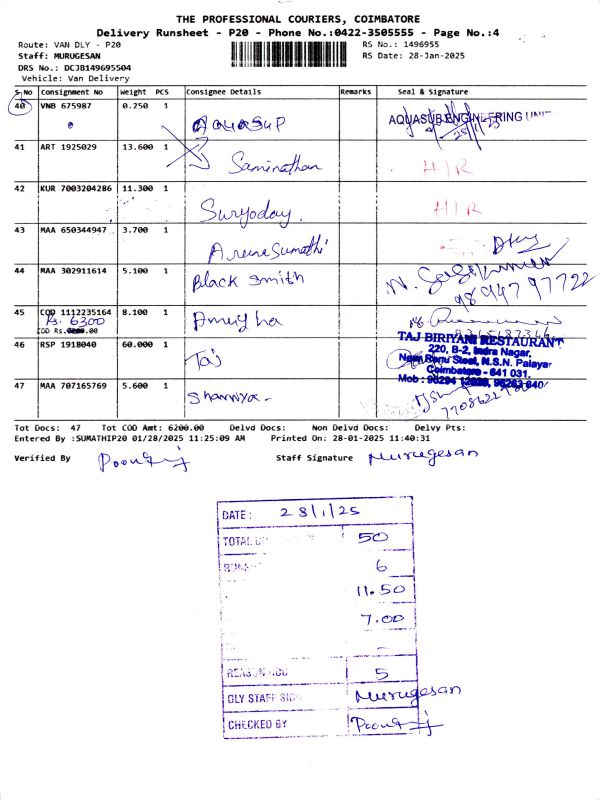 THE PROFESSIONAL COURIERS, COIMBATORE
Delivery Runsheet - P20 - Phone No.:0422-3505555 - Page No.:4
Route: VAN DLY - P20 RS No.: 1496955
Staff: MURUGESAN RS Date: 28-Jan-2025
DRS No.: DCJB149695504
Vehicle: Van Delivery
S.No Consignment No Weight PCS Consignee Details Remarks Seal & Signature
40 VNB 675987 0.250 1 Aquasup AQUASUB ENGINEERING UNIT
41 ART 1925029 13.600 1 Saminathan H/R
42 KUR 7003204286 11.300 1 Suryoday H/R
43 MAA 650344947 3.700 1
44 MAA 302911614 5.100 1 Black Smith 98947 97722
45 COD 1112235164 8.100 1 Amugha
Rs. 6300
COD Rs. .00
46 RSP 1918040 60.000 1 Taj TAJ BIRIYANI RESTAURANT
220, B-2, Indra Nagar,
Near Renu Steel, N.S.N. Palayam
Coimbatore - 641 031.
Mob : 98294
47 MAA 707165769 5.600 1 Shanniya
Tot Docs: 47 Tot COD Amt: 6200.00 Delvd Docs: Non Delvd Docs: Delvy Pts:
Entered By :SUMATHIP20 01/28/2025 11:25:09 AM Printed On: 28-01-2025 11:40:31
Verified By Staff Signature Murugesan
DATE : 28/1/25
TOTAL 50
6
11.50
7.00
-
REASON 5
DLY STAFF SIGN Murugesan
CHECKED BY